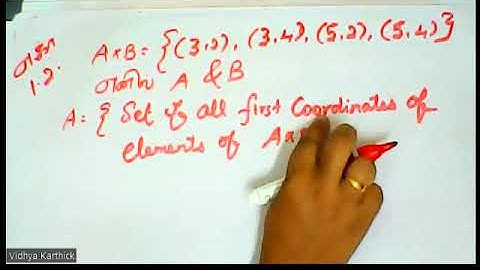 1.2. A×B = {(3,2), (3,4), (5,2), (5,4)}
A & B
A = { Set of all first Coordinates of
elements of A×
Vidhya Karthick